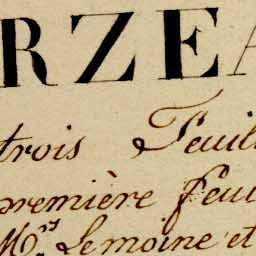 RZEA
trois Feuil
première feui
M.rs Lemoine et